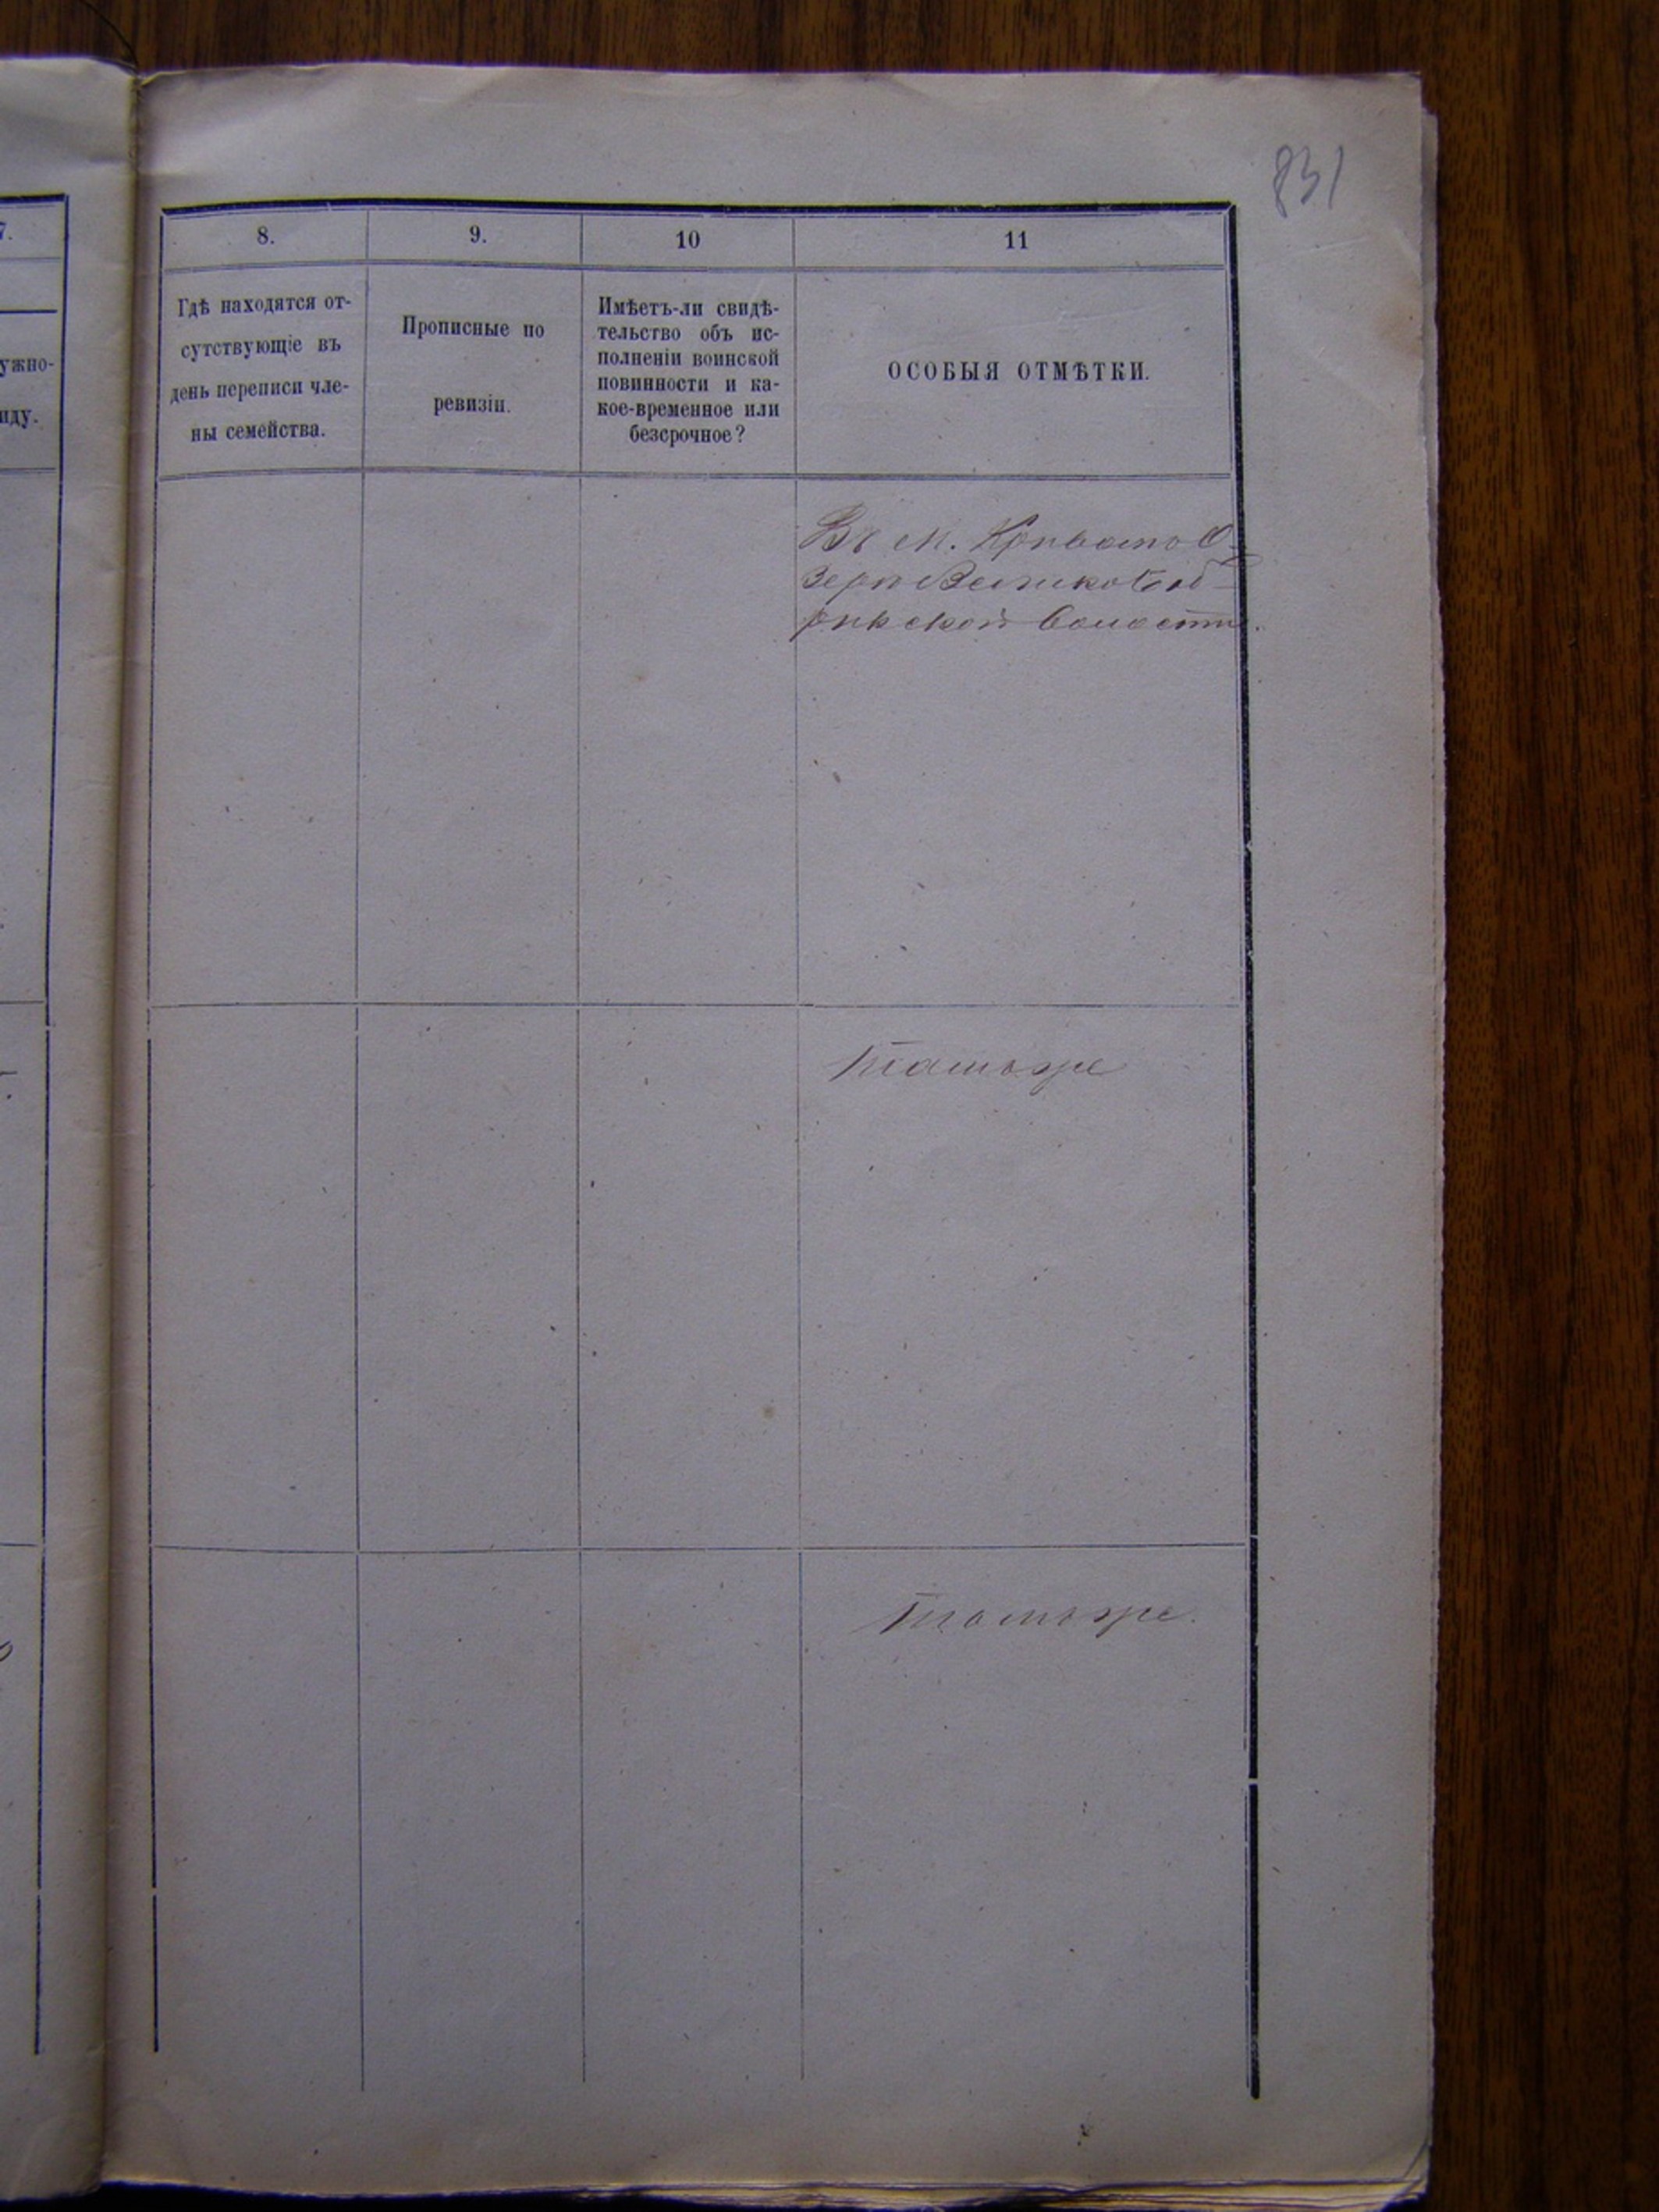 831
7.
ужно-
иду.
8.
9.
10
11
Гдѣ находятся от-
сутствующіе въ
день переписи чле-
ны семейства.
Прописные по
ревизіи.
Имѣетъ-ли свидѣ-
тельство объ ис-
полненіи воинской
повинности и ка-
кое-временное или
безсрочное?
ОСОБЫЯ ОТМѢТКИ.
Въ м. Кривомъ О-
зерѣ
волости.
тамъ же
тамъ же.